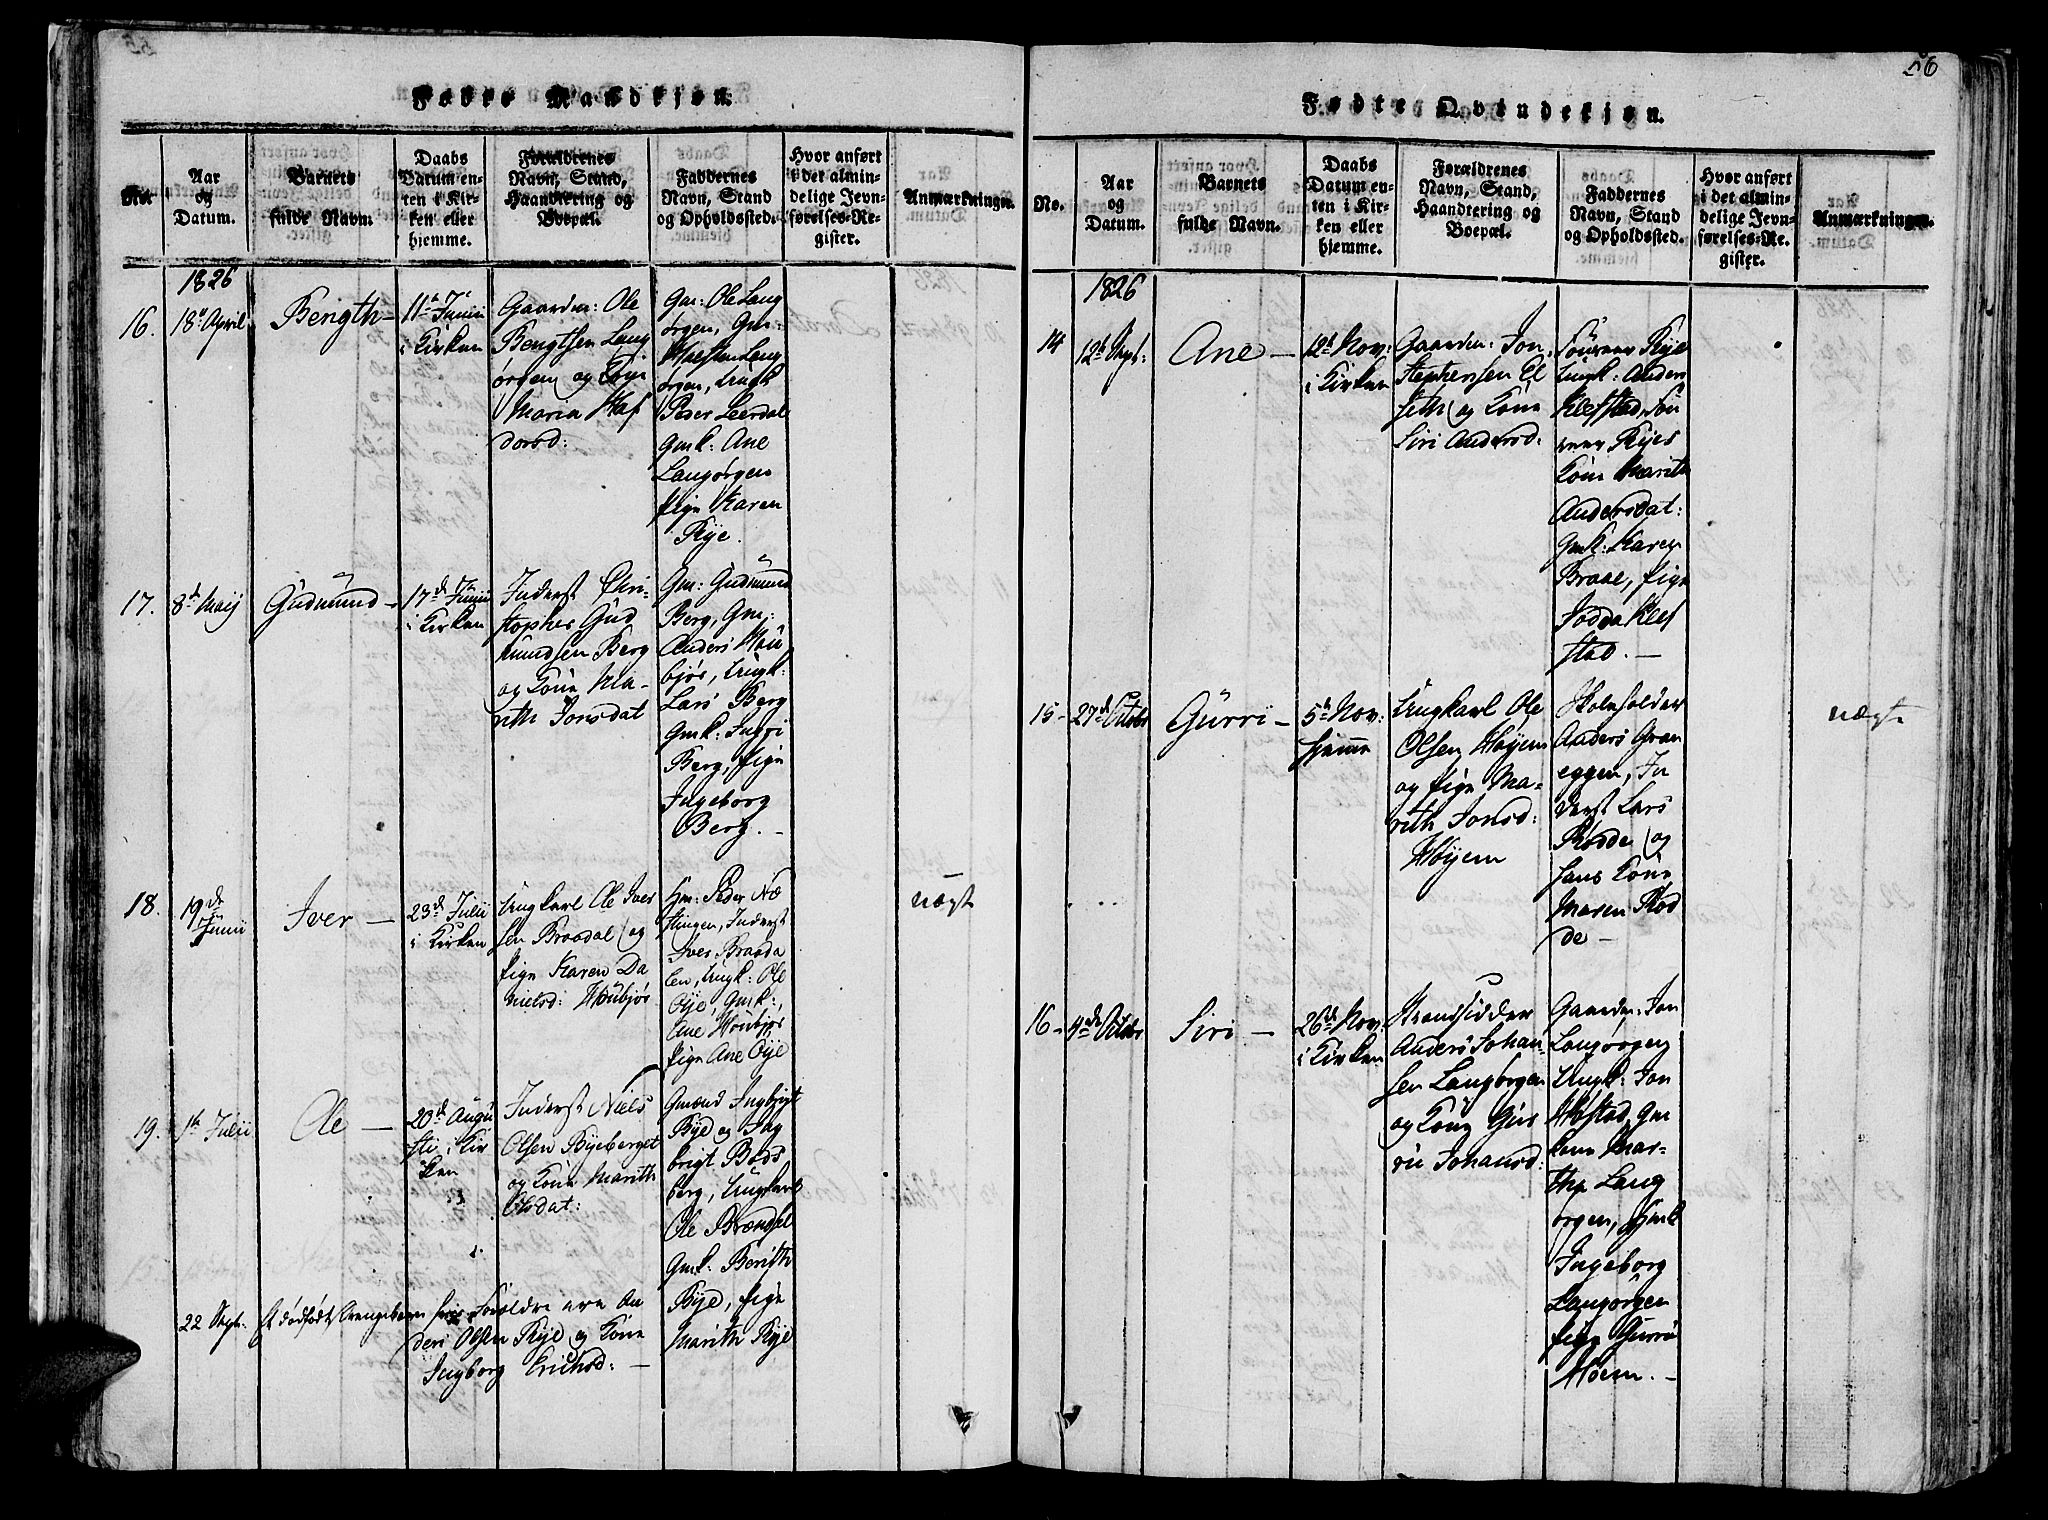 Fødte Mandkjøn.
No.
Aar
og
Datum.
Barnets
fulde Navn.
Daabs
Datum en-
ten i Kir-
ken eller
hjemme.
Forældrenes
Navn, Stand,
Haandtering og
Boepæl.
Faddernes
Navn, Stand
og Opholdssted.
Hvor anført
i det almin-
delige Jevn-
førelses-Re-
gister.
Anmærkninger.
1826
16.
18de April
Bength
11te Junii
i Kirken
Gaardm: Ole
Bengtsen Lang
ørgen og Kone
Maria Haf
dorsd:
Gm: Ole Lang
ørgen, Gm:
Lang
ørgen, Ungk
Peder Leerdal
Gmk: Ane
Langørgen
Pige Karen
Rye.
17.
8de Maij
Gudmund
17de Junii
i Kirken
Inderst Chri-
stopher Gud
mundsen Berg
og Kone Ma-
rith Jonsdat
Gm: Gudmund
Berg, Gm:
Anders Hou
bjør, Ungk:
Lars Berg
Gmk: Ingri
Berg, Pige
Ingeborg
Berg.
18.
19de
Junii
Iver
23de Julii
i Kirken
Ungkarl Ole Iver
sen Braadal og
Pige Karen Da
nielsd: Houbjør
Hm: Peder Næ
stingen, Inderst
Iver Braada
len, Ungk: Ole
Øye, Gmk:
Ane Houbjør
Pige Ane Øye
uægte
19.
1te Julii
Ole
20de Augu
sti i Kir
ken
Inderst Niels
Olsen Byeberget
og Kone Marith
Olsdat:
Gmænd Ingbrigt
Bye og Ing
brigt Bods
berg, Ungkarl
Ole Brændsel
Gmk: Berith
Bye, Pige
Marith Rye
22 Sept:
Et dødfødt Drengebarn hvis Forældre ere An
ders Olsen Rye og Kone
Ingborg Erichsd:
56
Fødte Qvindekjøn.
No.
Aar
og
Datum.
Barnets
fulde Navn.
Daabs
Datum en-
ten i Kir-
ken eller
hjemme.
Forældrenes
Navn, Stand,
Haandtering og
Boepæl.
Faddernes
Navn, Stand
og Opholdssted.
Hvor anført
i det almin-
delige Jevn-
førelses-Re-
gister.
Anmærkninger.
1826
14
12te Sept:
Ane
12te Nov:
i Kirken
Gaardm: Jon
Stephensen El
seth og Kone
Siri Andersd:
Rye
Ungk: Anders
Klefstad,
Ryes
Kone Marith
Andersdat:
Gmk: Karen
Braae, Pige
Klef
stad.
15
27de Octobr
Gurri
5te Nov:
hjemme
Ungkarl Ole
Olsen Høyem
og Pige Ma-
rith Jonsd:
Høyem
Skoleholder
Anders Gran
eggen, In
derst Lars
Rødde og
hans Kone
Maren Rød
de
uægte
16
4de Octobr
Siri
26de Nov:
i Kirken
Strandsidder
Anders Johan
sen Langørgen
og Kone Gur
rii Johansd:
Gaardm: Jon
Langørgen
Ungk: Jon
Hofstad, Gm
kone Mar-
the Lang
ørgen, Hmk
Ingeborg
Langørgen
Pige Gurrii
Høem.